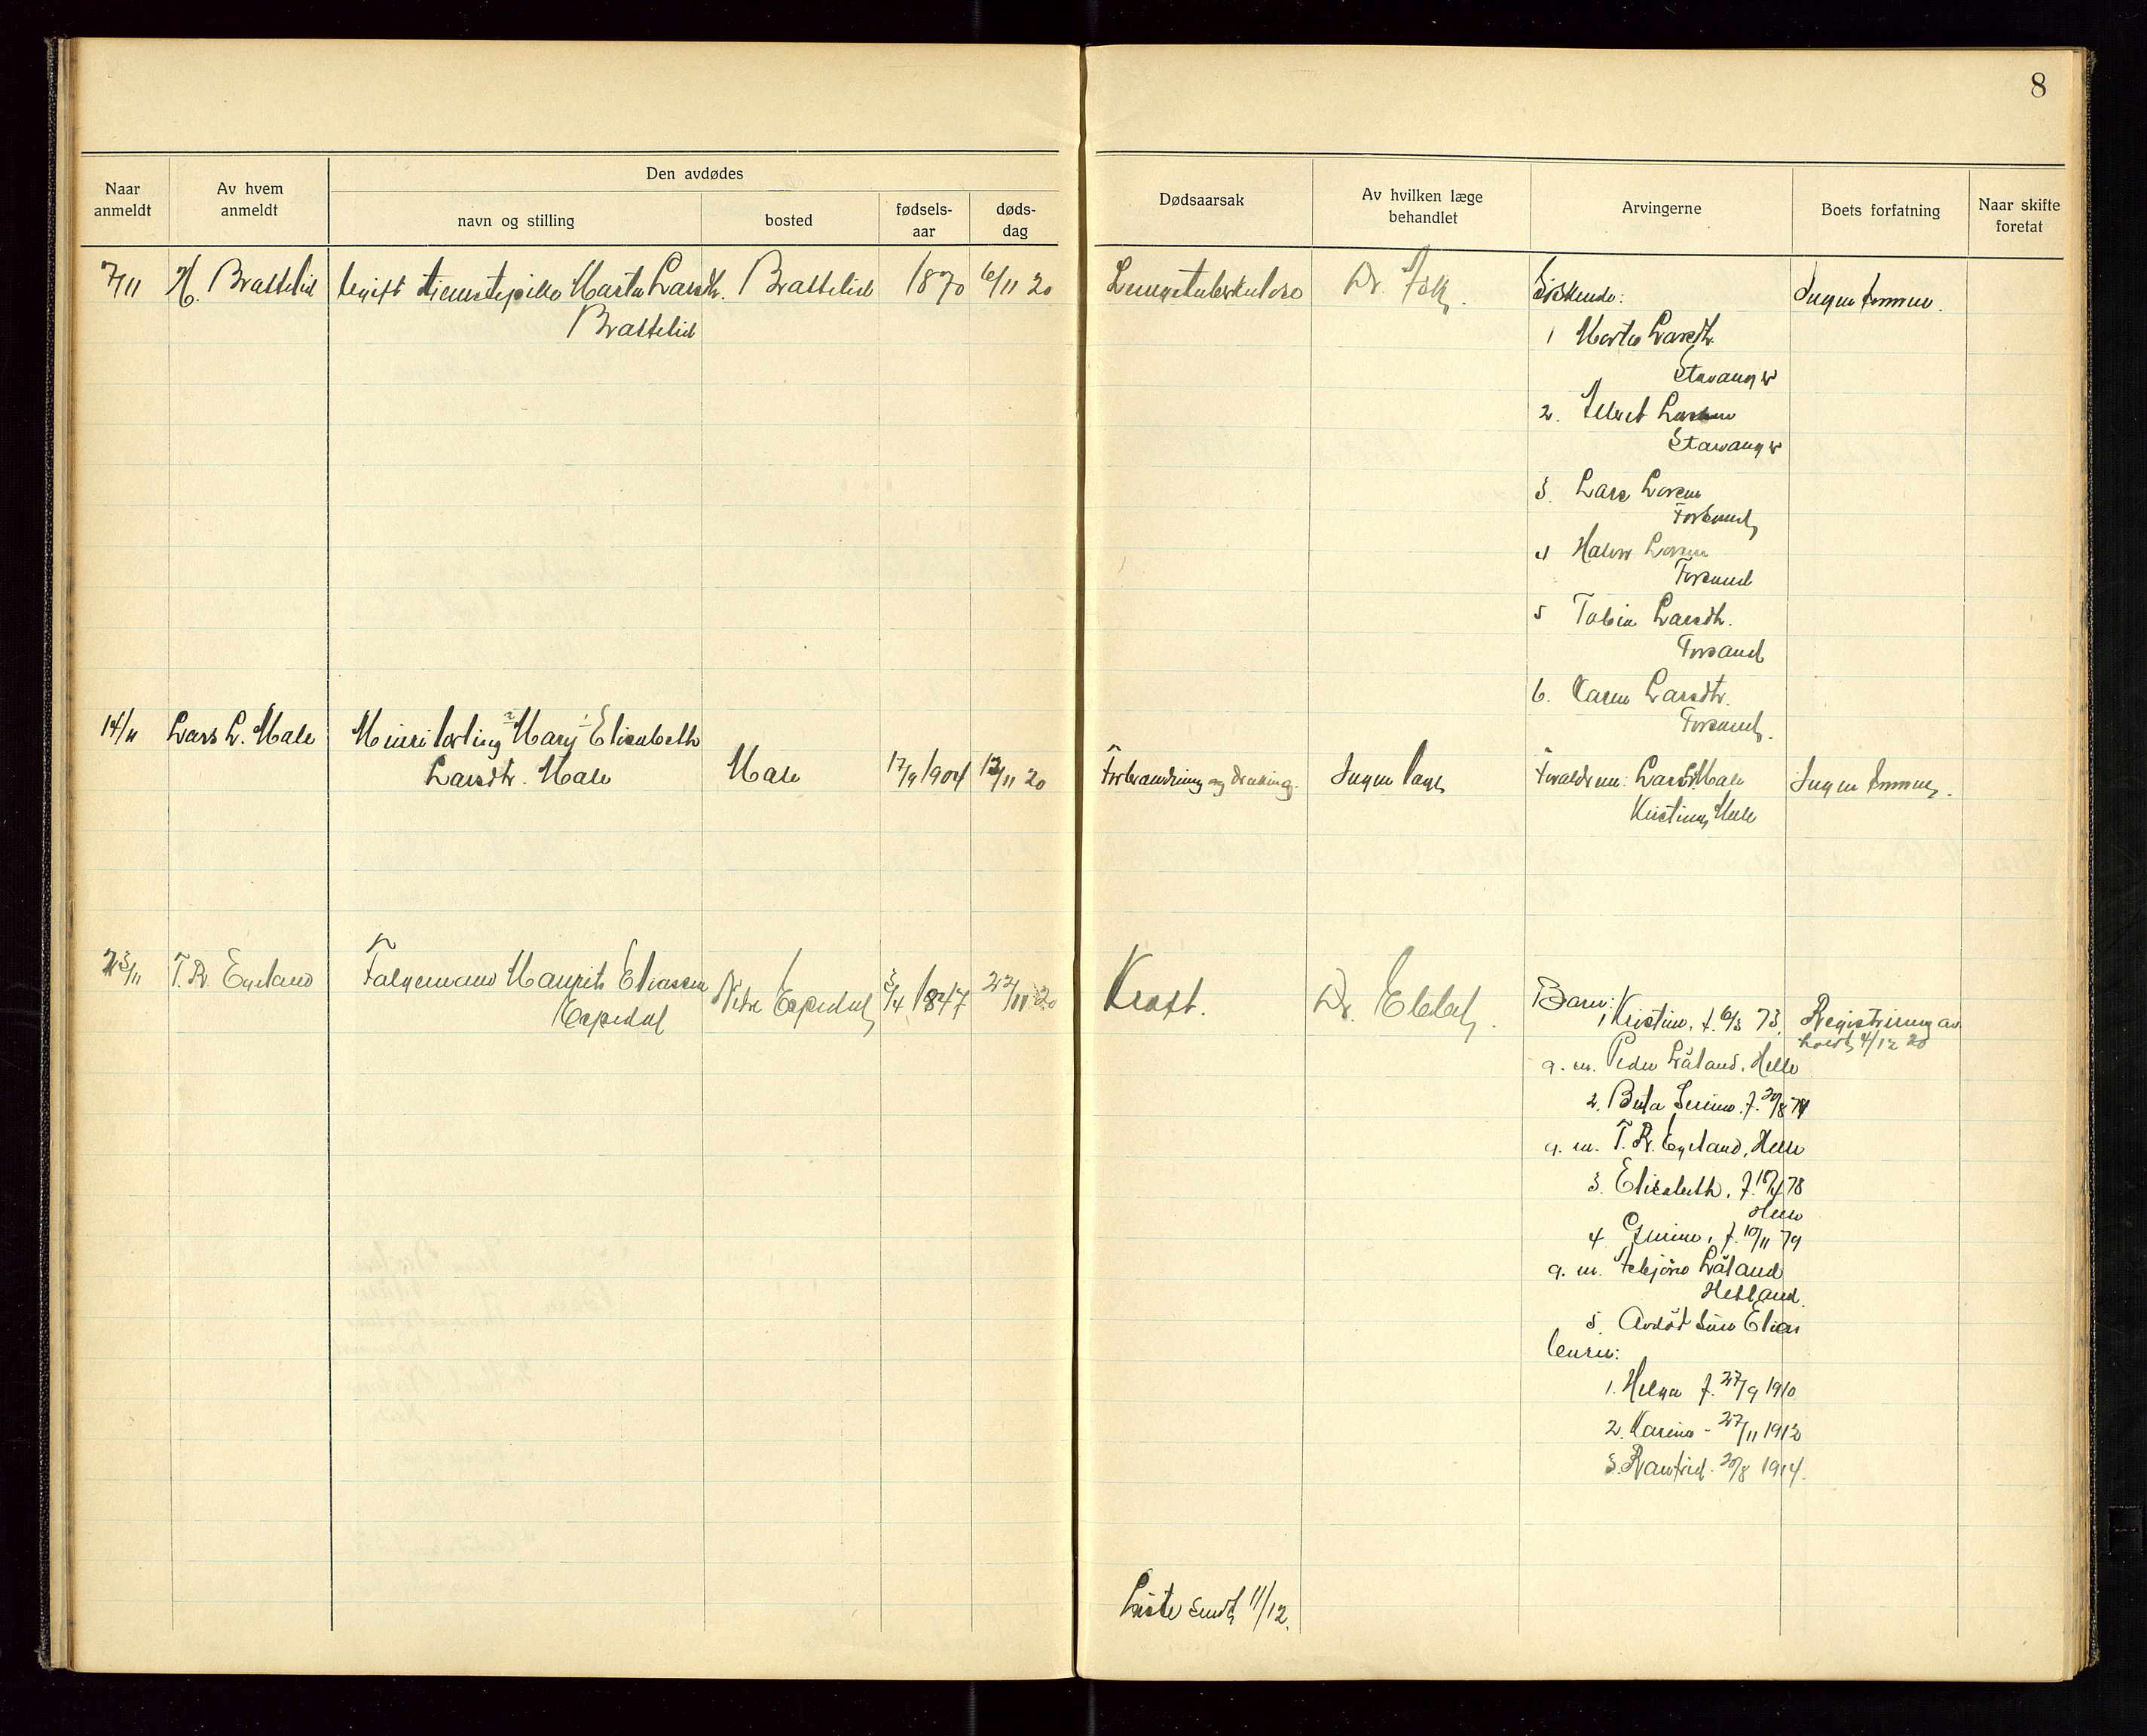 8
Naar anmeldt
Av hvem anmeldt
Den avdødes
navn og stilling
bosted
fødsels-aar
døds-dag
Dødsaarsak
Av hvilken læge behandlet
Arvingerne
Boets forfatning
Naar skifte foretat
7/11 H. Brattelid Ugift tjenestepike Marta Larsdtr. Brattelid 1870 6/11 20 Lungetuberkulose Dr. Falk. Søskende: Ingen formue.
Brattelid
1 Marta Larsdtr.
Stavanger
2. Larsen
Stavanger
3. Lars Larsen
Forsand
4 Halvor Larsen
Forsand
5 Tobia Larsdtr.
Forsand
6. Karen Larsdtr.
Forsand.
14/11 Lars L. Male Mary Elisabeth
Larsdtr. Male Male 17/9 1904 12/11 20 Forbrænding og drukning. Ingen læge Forældrene: Lars L. Male Ingen formue.
Kristine Male
23/11 T. R. Egeland Følgemand Maurits Eliassen
Espedal Nedre Espedal 3/4 1847 22/11 20 Kræft. Dr. Barn:
1 Kristine, f. 6/3 73. Registrering av
boet 4/12 20
g. m. Peder Låland, Helle
2. Berta Serine f. 30/8 74
g. m. T. R. Egeland, Helle
3. Elisabeth, f. 18/4 78
Helle
4 Gurine, f. 10/11 79
g. m. Asbjørn Låland
Helland.
5. Avdød søn Elias
barn:
1. Helga f. 27/9 1910
2. Karine - 27/11 1912
3. Ranfrid - 30/8 1914.
Liste sendt 11/12.